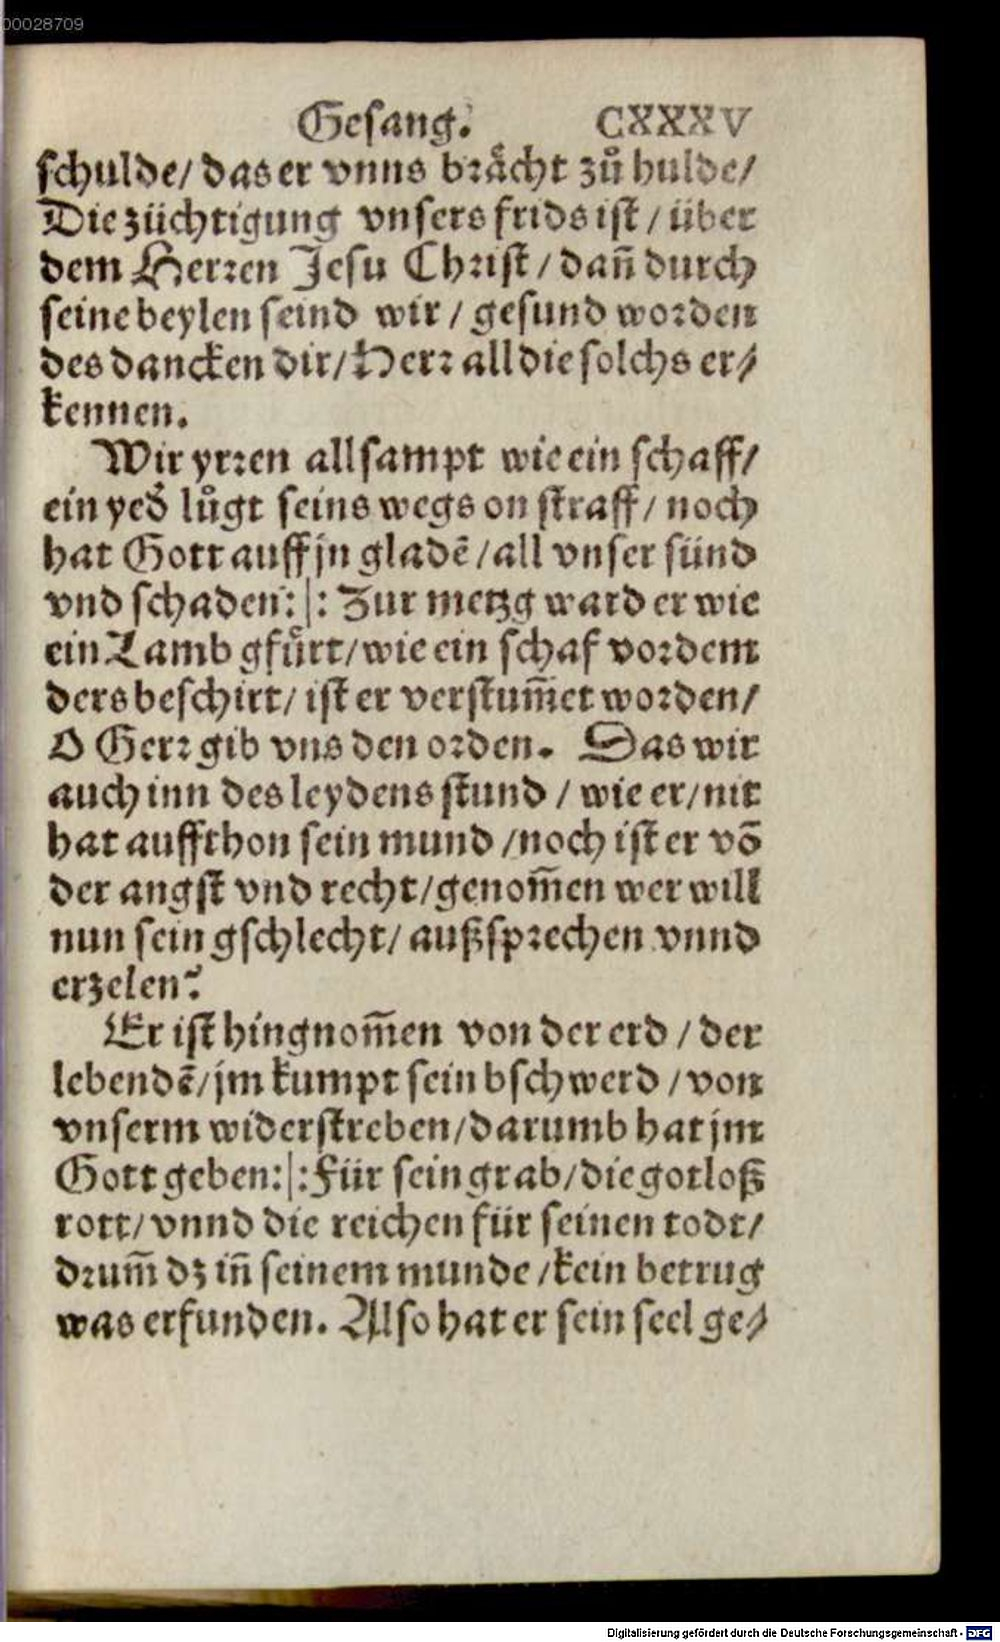 00028709
Gesang. CXXXV
schulde/ das er vnns brächt zů hulde/
Die züchtigung vnsers frids ist / über
dem Herren Jesu Christ / dañ durch
seine beylen seind wir / gesund worden
des dancken dir/ Herr all die solchs er⸗
kennen.
Wir yrren allsampt wie ein schaff/
ein yed̕ lůgt seins wegs on straff / noch
hat Gott auff jn gladē /all vnser sünd
vnd schaden:|: Zur metzg ward er wie
ein Lamb gfůrt/wie ein schaf vor dem
ders beschirt/ ist er verstum̃et worden/
O Herr gib vns den orden. Das wir
auch inn des leydens stund / wie er/nit
hat auffthon sein mund /noch ist er võ
der angst vnd recht/genom̃en wer will
nun sein gschlecht/ außsprechen vnnd
erzelen?
Er ist hingnom̃en von der erd / der
lebendē/jm kumpt sein bschwerd /von
vnserm widerstreben/darumb hat jm
Gott geben:|:Für sein grab/die gotloß
rott/ vnnd die reichen für seinen todt/
drum̃ dz iñ seinem munde /kein betrug
was erfunden. Also hat er sein seel ge⸗
Digitalisierung gefördert durch die Deutsche Forschungsgemeinschaft - DFG